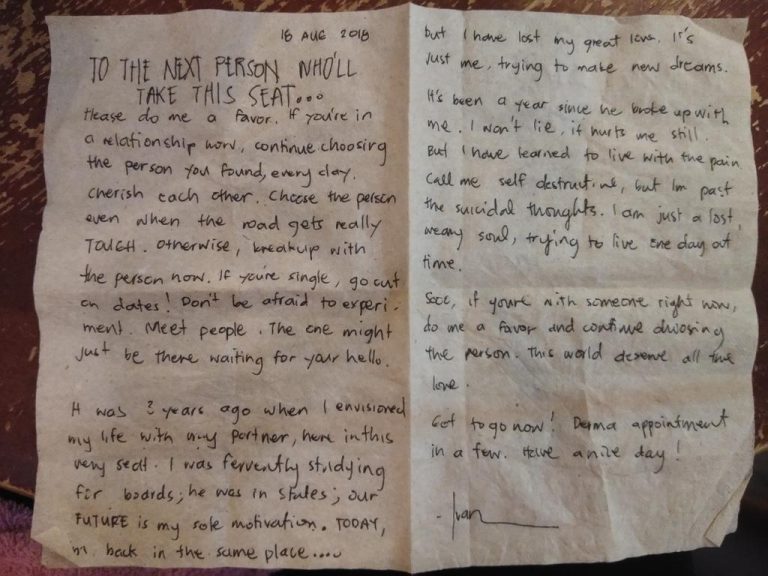 18 AUG 2018
TO THE NEXT PERSON WHO'LL
TAKE THIS SEAT...
Please do me a favor. If you're in
a relationship now, continue choosing
the person you found, every day.
Cherish each other. Choose the person
even when the road gets really
TOUGH. Otherwise, breakup with
the person now. If you're single, go out
on dates! Don't be afraid to experi-
ment. Meet people. The one might
just be there waiting for your hello.
It was 3 years ago when I envisioned
my life with my partner, here in this
very seat. I was fervently studying
for boards; he was in States; our
FUTURE is my sole motivation. TODAY,
m back in the same place....
but I have lost my great love. It's
just me, trying to make new dreams.
It's been a year since he broke up with
me. I won't lie, it hurts me still
But I have learned to live with the pain
Call me self destructive, but Im past
the suicidal thoughts. I am just a lost,
weary soul, trying to live one day at
time.
Sooo, if youre with someone right now,
do me a favor and continue choosing
the person. This world deserve all the
love.
Got to go now! Derma appointment
in a few. Have a nice day!
- Ivan